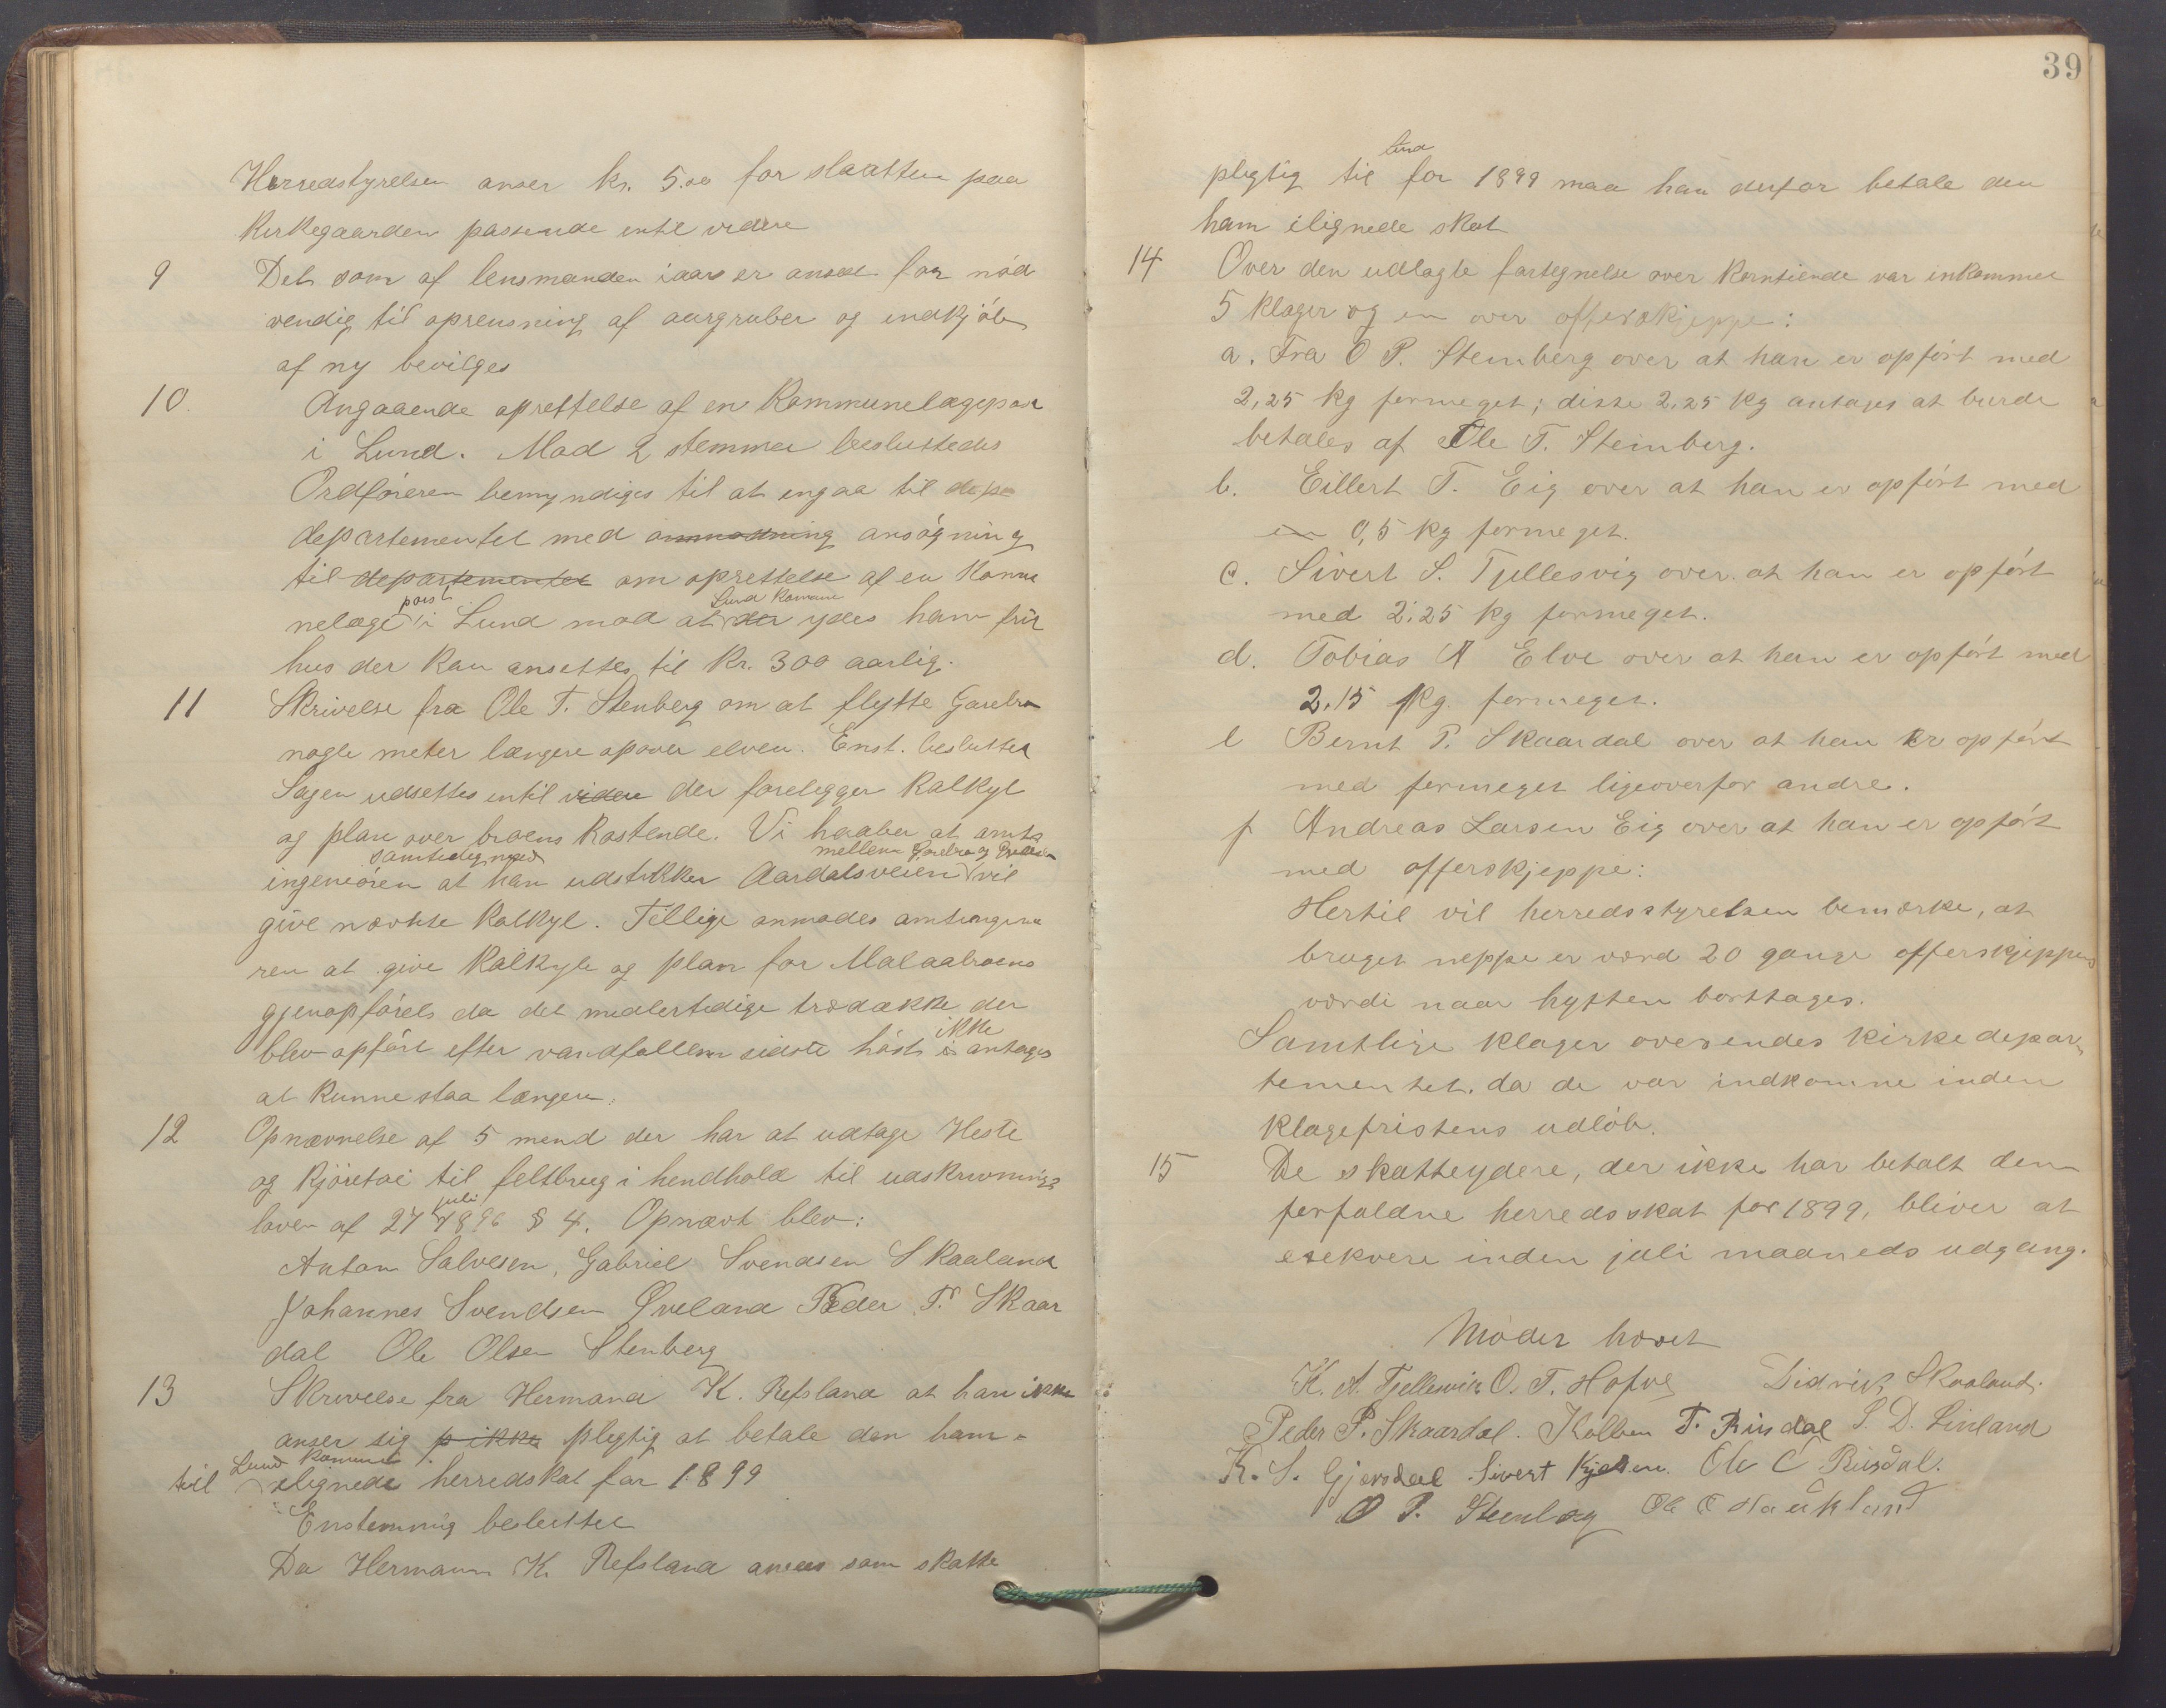 Herredstyrelsen anser kr. 5.00 for slaatten paa
Kirkegaarden passende intil videre
9 Det som af lensmanden iaar er anseet for nød
vendig til oprensning af aurgruber og indkjøb
af ny bevilges
10. Angaaende oprettelse af en Kommunelægepost
i Lund. Mod 2 stemmer besluttedes
Ordføreren bemyndiges til at engaa til depe
departementet med anmodning ansøgning
til departementet om oprettelse af en Komu
post Lund Komune
nelæge i Lund mod at der ydes ham frit
hus der kan ansettes til Kr. 300 aarlig.
11 Skrivelse fra Ole T. Stenberg om at flytte Garebro
nogle meter længere opover elven. Enst. besluttet
Sagen udsettes intil videre der forelegger Kalkyl
og plan over broens Kostende. Vi haaber at amts
samtidig med mellem Garebro og
ingeniøren at han udstikker Aardalsveien vil
give nævnte Kalkyl. Tillige anmodes amtsingeniø
ren at give Kalkyle og plan for Malaabroens
gjenopførels da det medlertidige trædække der
ikke
blev opført efter vandfollem sidste høst i antages
at kunne staa længere.
12 Opnævnelse af 5 mend der har at udtage Heste
og Kjøretøi til feltbrug i hendhold til udskrivnings
juli
loven af 27 1896 § 4. Opnævt blev:
Anton Salvesen, Gabriel Svendsen Skaaland
Johannes Svendsen Øveland Peder P. Skaar
dal Ole Olsen Stenberg
13 Skrivelse fra Hermand K. Refsland at han ikke
anser sig p ikke plegtig at betale den ham
Lund Komune
til ilignede herredskat for 1899
Enstemmig besluttet
Da Hermann K. Refsland ansees som skatte
39
Lund
plegtig til for 1899 maa han derfor betale den
ham ilignede skat
14 Over den udlagte fortegnelse over Korntiende var inkommet
5 Klager og en over offerskjeppe:
a. Fra O P. Steinberg over at han er opført med
2,25 kg formeget; disse 2,25 kg antages at burde
betales af Ole T. Steinberg.
b. Eillert T. Eig over at han er opført med
en 0,5 kg formeget.
c. Sivert S. Tjellesvig over at han er opført
med 2.25 kg formeget.
d. Tobias A Elve over at han er opført med
2.15 Kg. formeget.
e Bernt P. Skaardal over at han er opført
med formeget ligeoverfor andre.
f Andreas Larsen Eig over at han er opført
med offerskjeppe:
Hertil vil herredsstyrelsen bemærke, at
bruget neppe er værd 20 gange offerskjeppens
værdi naar hytten borttages.
Samtlige klager oversendes kirkedepar
tementet. da de var indkomne inden
klagefristens udløb.
15 De skatteydere, der ikke har betalt den
forfaldne herredsskat for 1899, bliver at
esekvere inden juli maaneds udgang.
Mødet hævet
K. A. Tjellesvik O. T. Hofve Didrik Skaaland.
Peder P. Skaardal. Kolben T. Rusdal S. D. Linland
K. S. Gjersdal Sivert Kjelsen. Ole C Rusdal.
O P. Steenberg Ole O Haukland